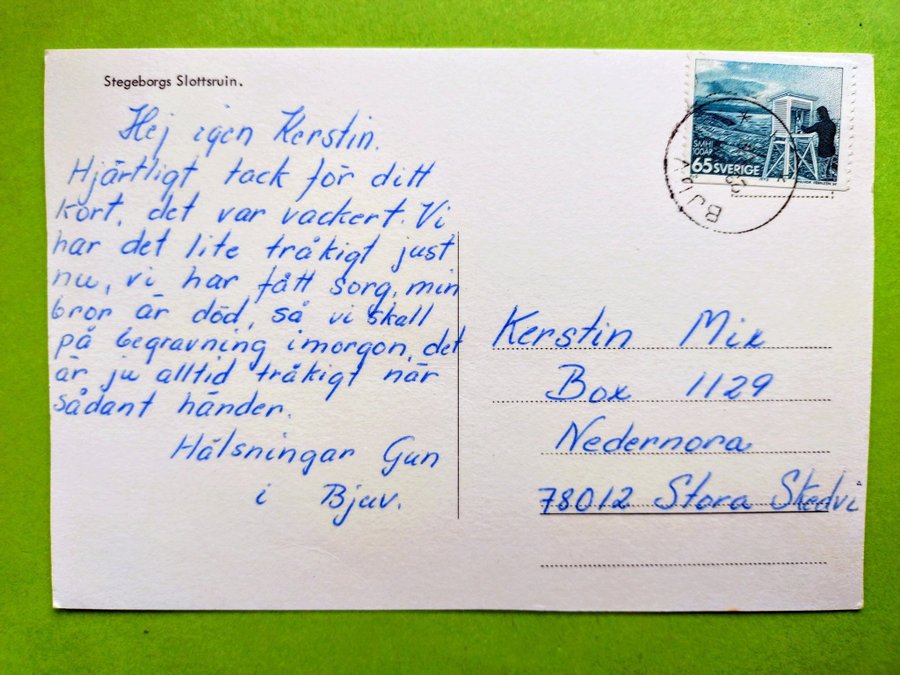 Stegeborgs Slottsruin.
Hej igen Kerstin.
Hjärtligt tack för ditt
kort, det var vackert. Vi
har det lite tråkigt just
nu, vi har fått sorg, min
bror är död, så vi skall
på begravning imorgon, det
är ju alltid tråkigt när
sådant händer.
Hälsningar Gun
i Bjuv.
SMHI
100 ÅR
65 SVERIGE
BJUV
Kerstin Mix
Box 1129
Nedernora
78012 Stora Skedvi